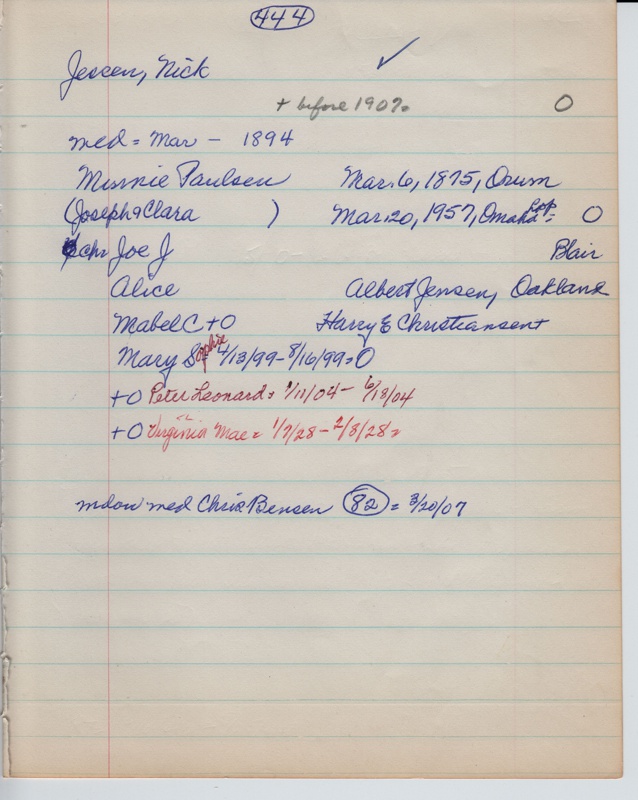 444
Jessen, Nick ✓
+ before 1907. O
med = Mar - 1894
Minnie Paulsen Mar. 6, 1875, Orum
(Joseph & Clara ) Mar. 20, 1957, Omaha = O
chr Joe J Blair
Alice Albert Jensen, Oakland
Mabel C + O Harry E Christiansen +
Mary Sophie 4/13/99 - 8/16/99 = O
+ O Peter Leonard = 1/11/04 - 6/18/04
+ O Virginia Mae = 1/7/28 - 2/8/28 =
med Chris Bensen 82 = 3/20/07